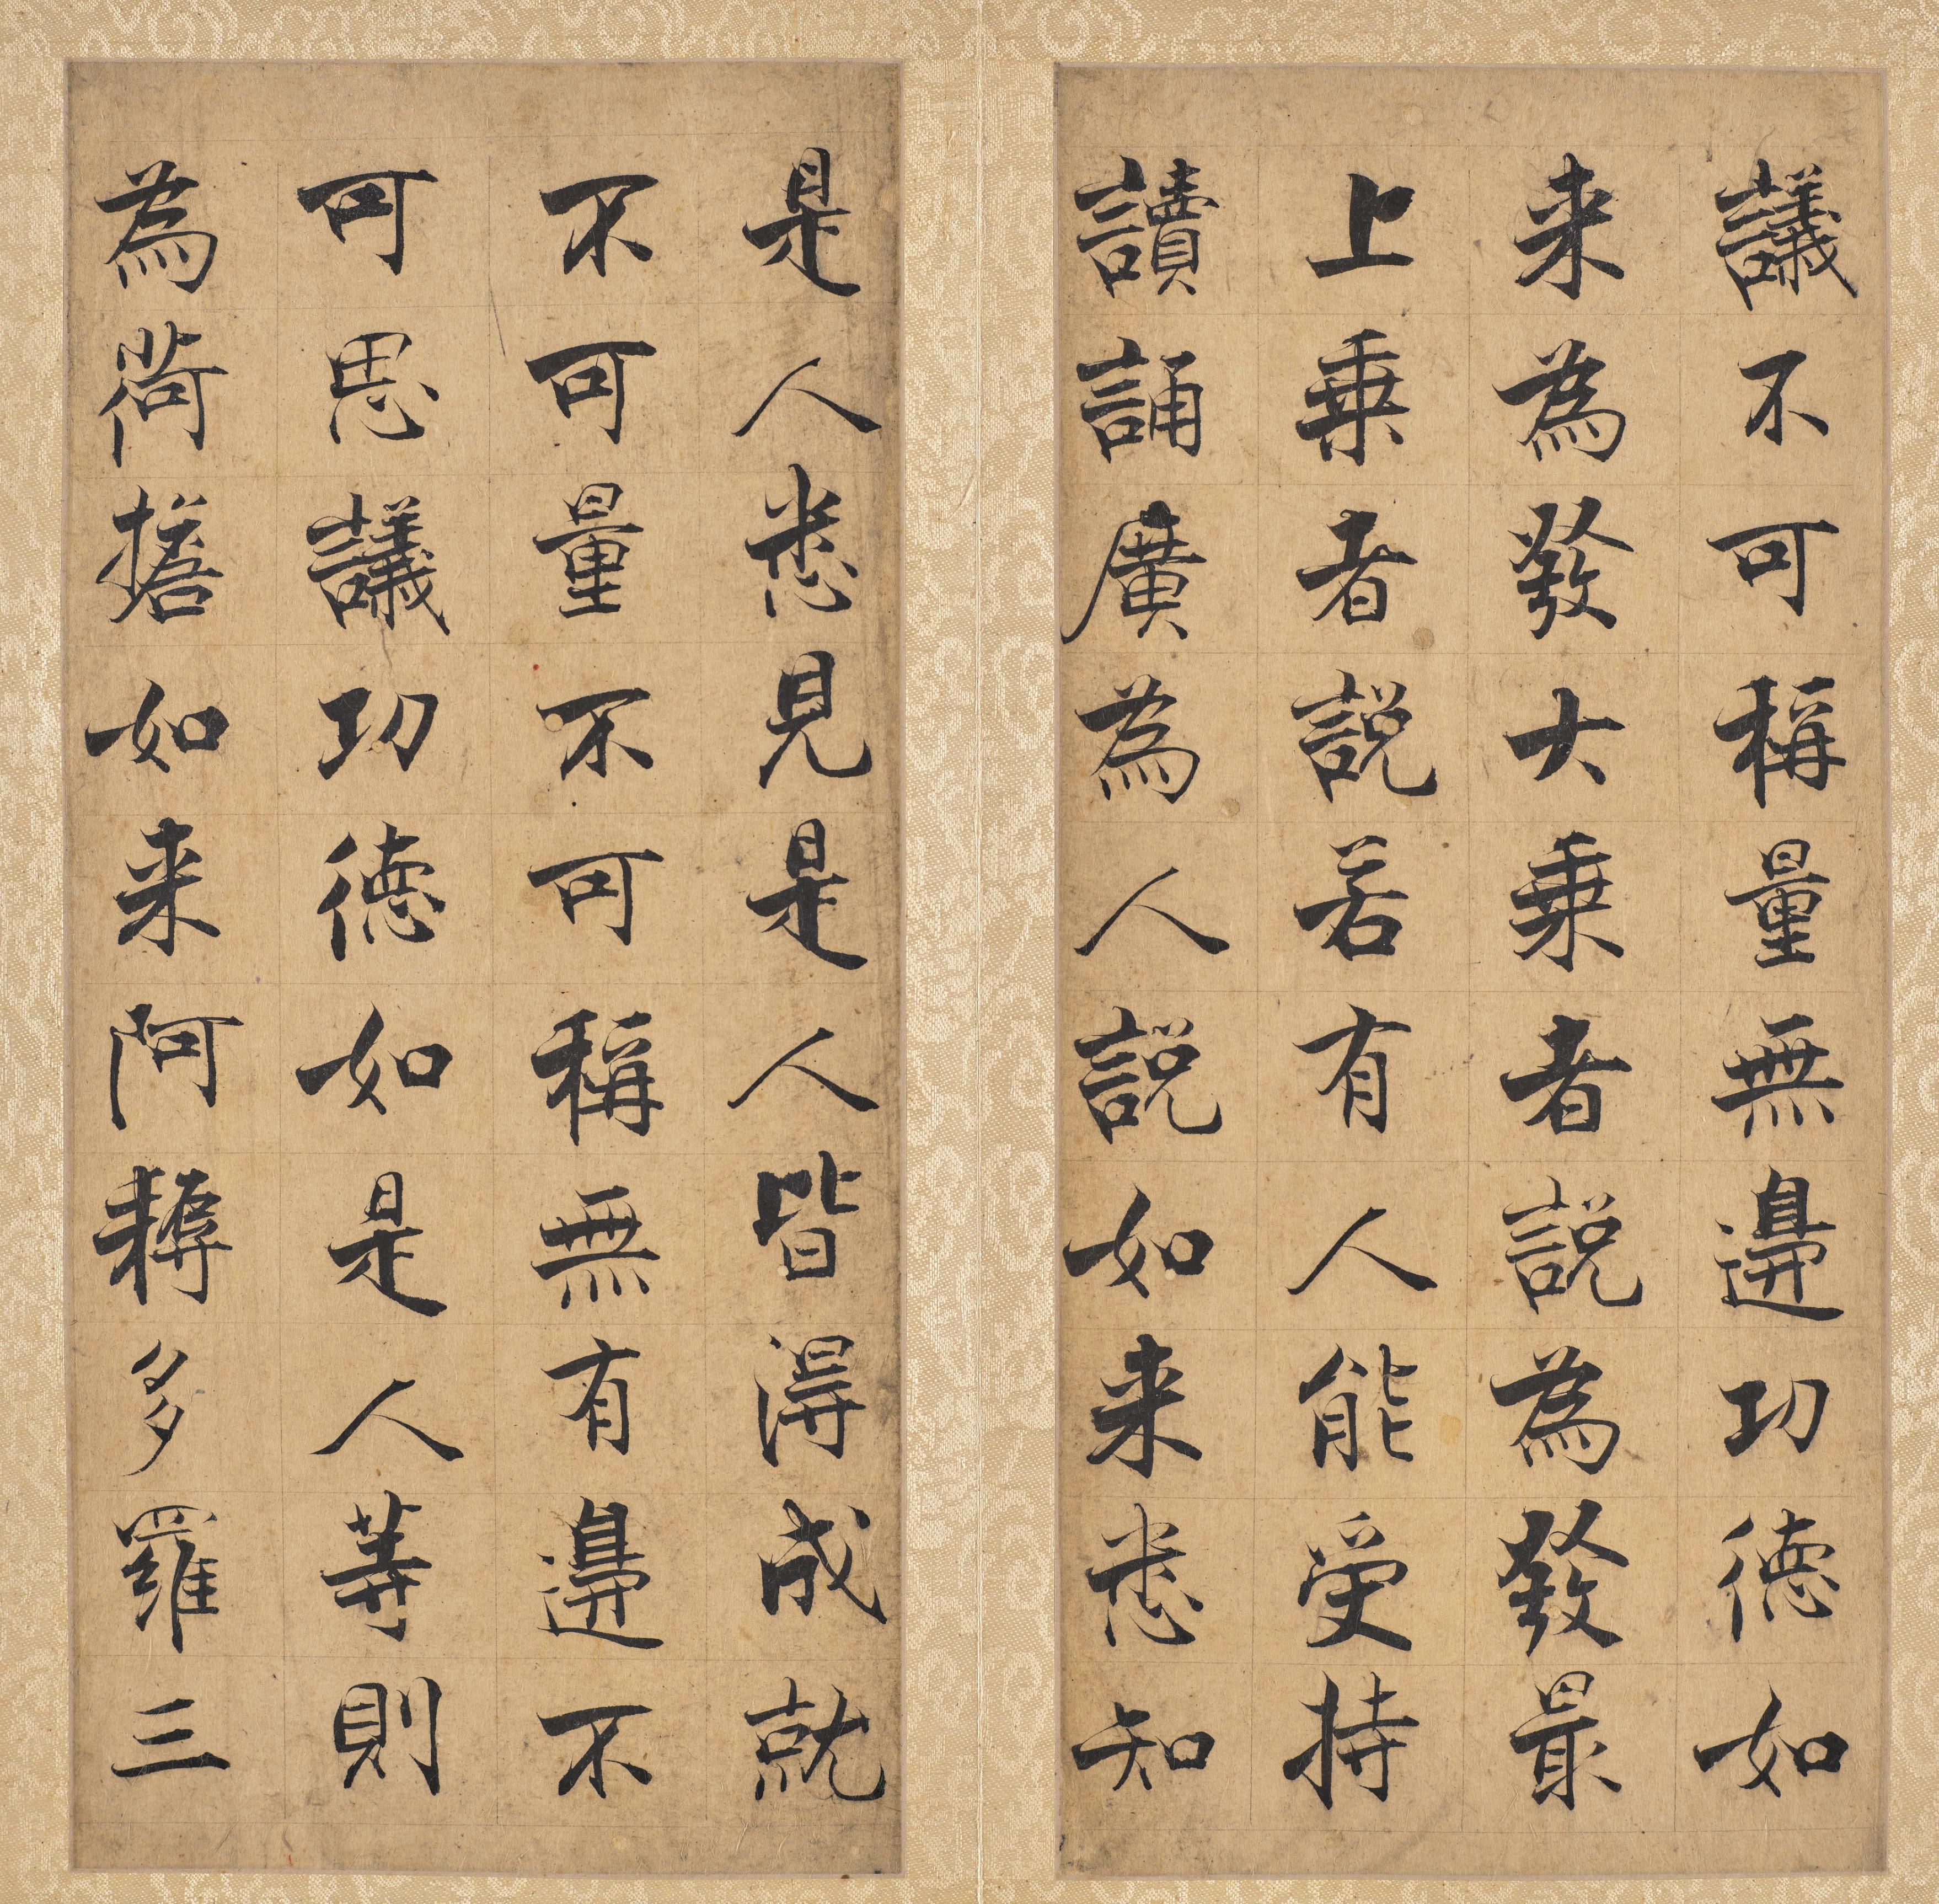 議不可稱量無邊功德如
来為發大乗者説為發最
上乗者説若有人能受持
讀誦廣為人説如来悉知
是人悉見是人皆淂成就
不可量不可稱無有邊不
可思議功德如是人等則
為荷擔如来阿耨多羅三